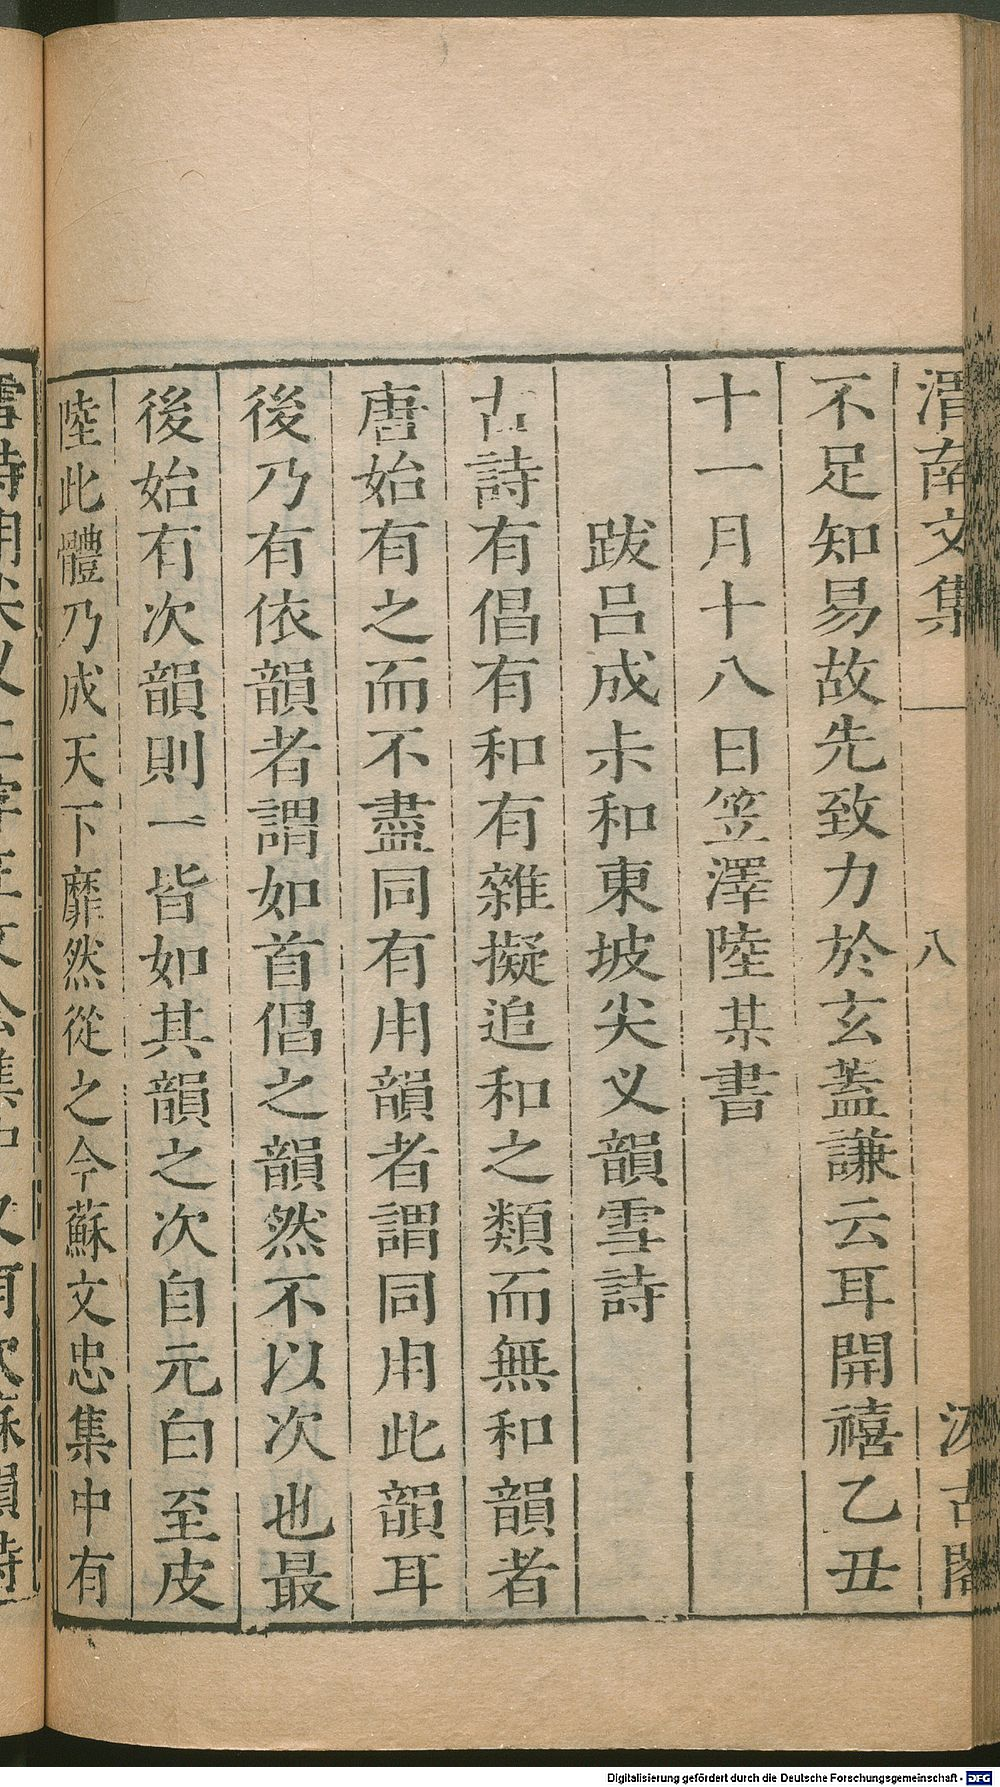 渭南文集
八
汲古閣
不足知易故先致力於玄蓋謙云耳開禧乙丑
十一月十八日笠澤陸某書
跋呂成尗和東坡尖叉韻雪詩
古詩有倡有和有雜擬追和之類而無和韻者
唐始有之而不盡同有用韻者謂同用此韻耳
後乃有依韻者謂如首倡之韻然不以次也最
後始有次韻則一皆如其韻之次自元白至皮
陸此體乃成天下靡然從之今蘇文忠集中有
Digitalisierung gefördert durch die Deutsche Forschungsgemeinschaft - DFG